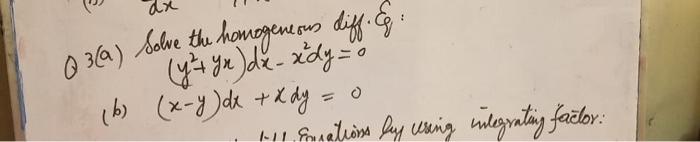 dx
Q 3(a) Solve the homogeneous diff. Eq:
(y²+yx)dx - x²dy = 0
(b) (x-y)dx + x dy = 0
Equations by using integrating factor: